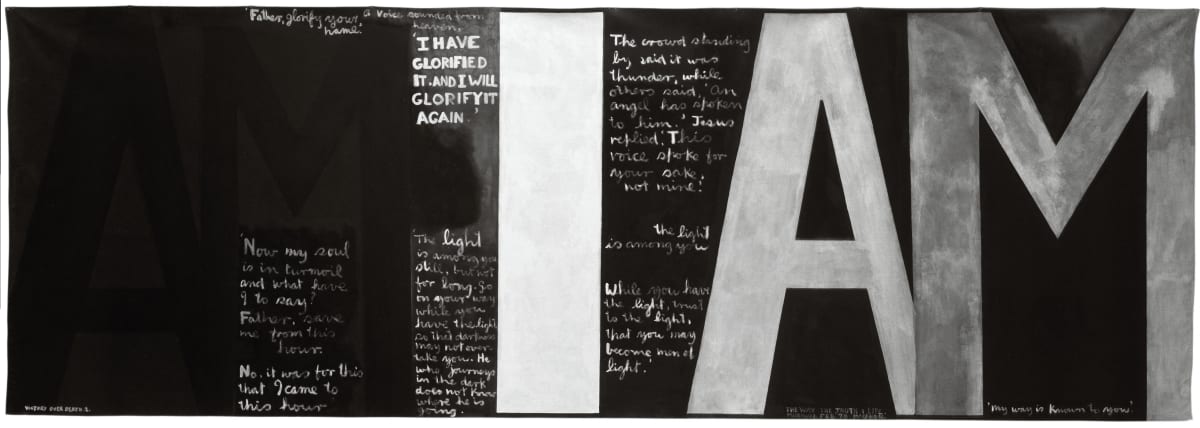 AM
'Father, glorify your name.'
A voice sounded from
heaven.
'I HAVE
GLORIFIED
IT. AND I WILL
GLORIFY IT
AGAIN.'
'Now my soul
is in turmoil
and what have
I to say?
Father, save
me from this
hour.
No, it was for this
that I came to
this hour
'The light
is among you
still, but not
for long. Go
on your way
while you
have the light
so that darkness
may not over-
take you. He
who journeys
in the dark
does not know
where he is
going.
I
The crowd standing
by said it was
thunder, while
others said, 'An
angel has spoken
to him.' Jesus
replied, 'This
voice spoke for
your sake,
not mine.'
the light
is among you
While you have
the light, trust
to the light,
that you may
become men of
light.'
AM
VICTORY OVER DEATH. 2.
THE WAY THE TRUTH & LIFE
FEB 70 McCAHON.
'my way is known to you.'